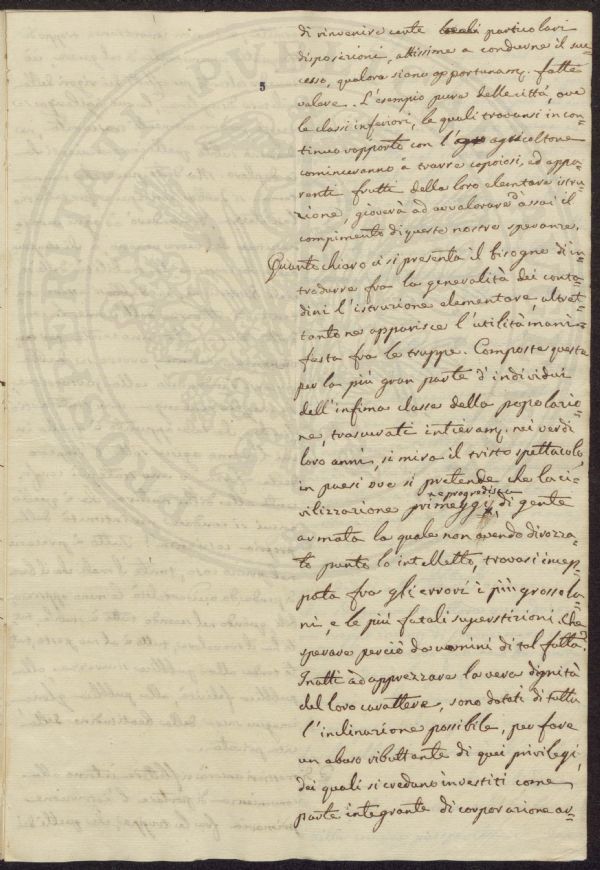 di rinvenire certe locali particolari
disposizioni, attissime a condurne il suc=
cesso, qualora siano opportunam. fatte
5
valere. L'esempio pure delle città, ove
le classi inferiori, le quali trovansi in con=
tinuo rapporto con l' agricoltore
cominceranno à trarre copiosi, ed appa=
renti frutti della loro elementare istru=
zione, gioverà ad avvalorare d'assai il
compimento di queste nostre speranze.
Quanto chiaro ci si presenta il bisogno di in=
trodurre fra la generalità dei conta=
dini l'istruzione elementare, altret=
tanto ne apparisce l'utilità mani=
festa fra le truppe. Composte queste
per la più gran parte d'individui
dell'infima classe della popolazio=
ne, trascurati intieram. nei verdi
loro anni, si mira il tristo spettacolo,
in paesi ove si pretende che la ci=
vilizzazione primeggi, e progredisca di gente
armata la quale non avendo dirozza=
to punto lo intelletto, trovasi incep=
pata fra gli errori i più grossola=
ni, e le più fatali superstizioni. Che
sperare perciò da uomini di tal fatta?
Inatti ad apprezzare la vera dignità
del loro carattere, sono dotati di tutta
l'inclinazione possibile, per fare
un abuso ributtante di quei privilegi,
dei quali si credono investiti come
parte integrante di corporazione ar=